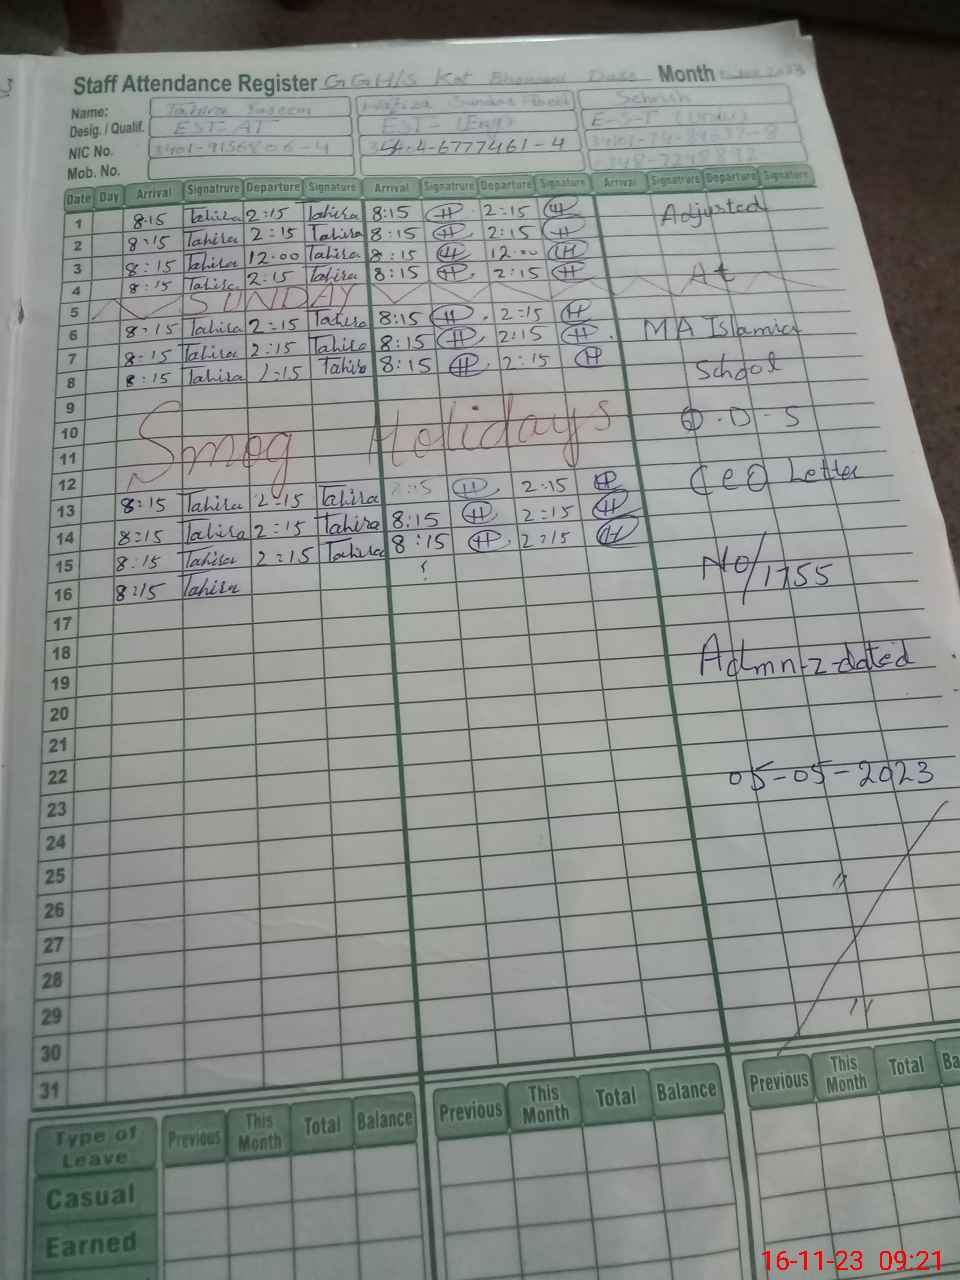 Staff Attendance Register GGH/S Kot Bhawani Dass Month
Name: Tahira Yaseem Hafiza Sundas Sehrish
Desig. / Qualif. EST-AT EST-(Eng) E-S-T (Urdu)
NIC No. 3401-9156806-4 4-6777461-4
Mob. No.
Date Day Arrival Signatrure Departure Signature Arrival Signatrure Departure Signature Arrival Signatrure Departure Signature
1 8:15 Tahira 2:15 Tahira 8:15 H 2:15 H Adjusted
2 8:15 Tahira 2:15 Tahira 8:15 H 2:15 H
3 8:15 Tahira 12.00 Tahira 8:15 H 12.00 H
4 8:15 Tahira 2:15 Tahira 8:15 H 2:15 H At
5 SUNDAY
6 8:15 Tahira 2:15 Tahira 8:15 H 2:15 H MA Islamia
7 8:15 Tahira 2:15 Tahira 8:15 H 2:15 H School
8 8:15 Tahira 2:15 Tahira 8:15 H 2:15 H
9 D-S
10 Smog Holidays
11
12 CeO Letter
13 8:15 Tahira 2:15 Tahira 8:15 H 2:15 H
14 8:15 Tahira 2:15 Tahira 8:15 H 2:15 H
15 8:15 Tahira 2:15 Tahira 8:15 H 2:15 H No/1755
16 8:15 Tahira
17
18 Admn-2-dated
19
20
21
22 05-05-2023
23
24
25
26 "
27
28
29
30 "
31
Type of Leave Previous This Month Total Balance Previous This Month Total Balance Previous This Month Total Ba
Casual
Earned
16-11-23 09:21